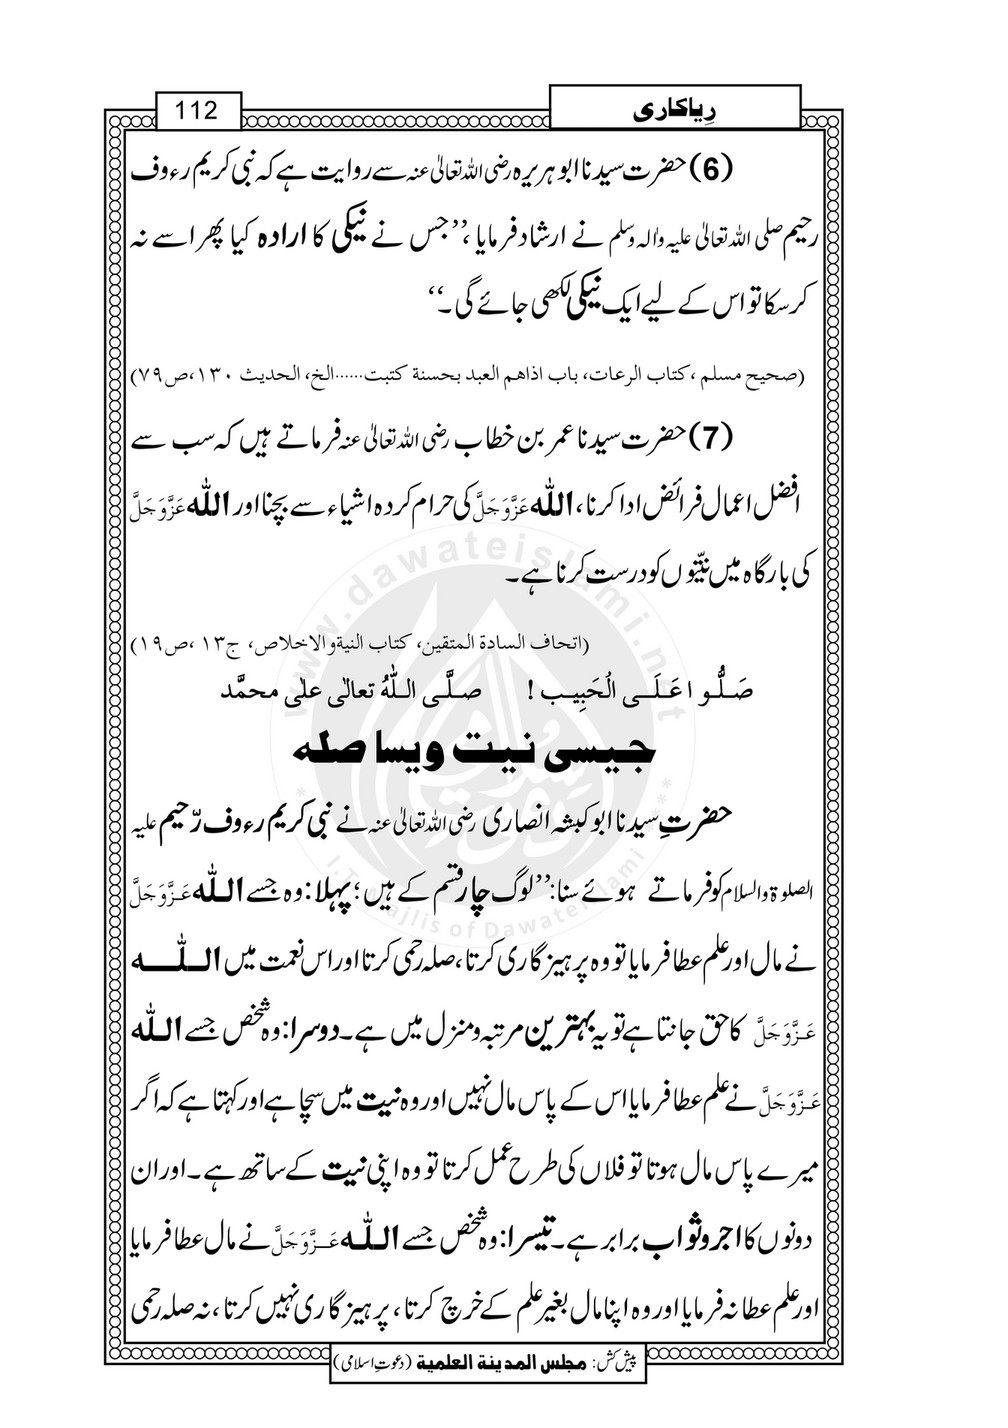 رِیاکاری
112
(6) حضرت سیدنا ابو ہریرہ رضی اللہ تعالیٰ عنہ سے روایت ہے کہ نبی کریم رءوف
رحیم صلی اللہ تعالیٰ علیہ والہ وسلم نے ارشاد فرمایا ،’’جس نے نیکی کا ارادہ کیا پھر اسے نہ
کرسکا تو اس کے لیے ایک نیکی لکھی جائے گی۔‘‘
(صحیح مسلم ،کتاب الرعات، باب اذاھم العبد بحسنة کتبت......الخ، الحدیث ۱۳۰،ص۷۹)
(7) حضرت سیدنا عمر بن خطاب رضی اللہ تعالیٰ عنہ فرماتے ہیں کہ سب سے
افضل اعمال فرائض ادا کرنا، اللّٰہ عَزَّوَجَلَّ کی حرام کردہ اشیاء سے بچنا اور اللّٰہ عَزَّوَجَلَّ
کی بارگاہ میں نیّتوں کو درست کرنا ہے۔
(اتحاف السادة المتقین، کتاب النیة والاخلاص، ج۱۳ ،ص۱۹)
صَلُّو اعَلَی الْحَبِیب ! صلَّی اللّٰهُ تعالٰی علٰی محمَّد
جیسی نیت ویسا صلہ
حضرتِ سیدنا ابو کبشہ انصاری رضی اللہ تعالیٰ عنہ نے نبی کریم رءوف رّحیم علیہ
الصلوۃ والسلام کو فرماتے ہوئے سنا:’’لوگ چار قسم کے ہیں؛ پہلا: وہ جسے اللّٰہ عَزَّوَجَلَّ
نے مال اور علم عطا فرمایا تو وہ پرہیز گاری کرتا، صلہ رحمی کرتا اور اس نعمت میں اللّٰہ
عَزَّوَجَلَّ کا حق جانتا ہے تو یہ بہترین مرتبہ و منزل میں ہے۔ دوسرا: وہ شخص جسے اللّٰہ
عَزَّوَجَلَّ نے علم عطا فرمایا اس کے پاس مال نہیں اور وہ نیت میں سچا ہے اور کہتا ہے کہ اگر
میرے پاس مال ہوتا تو فلاں کی طرح عمل کرتا تو وہ اپنی نیت کے ساتھ ہے۔ اور ان
دونوں کا اجر و ثواب برابر ہے۔ تیسرا: وہ شخص جسے اللّٰہ عَزَّوَجَلَّ نے مال عطا فرمایا
اور علم عطا نہ فرمایا اور وہ اپنا مال بغیر علم کے خرچ کرتا، پرہیز گاری نہیں کرتا، نہ صلہ رحمی
پیش کش: مجلس المدینة العلمیة (دعوتِ اسلامی)
www.dawateislami.net
I.T Majlis of DawateIslami